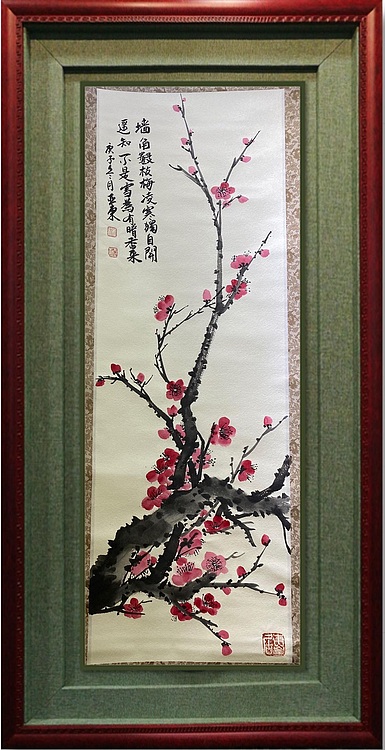 墙角數枝梅凌寒獨自開
遥知不是雪為有暗香来
庚子冬月